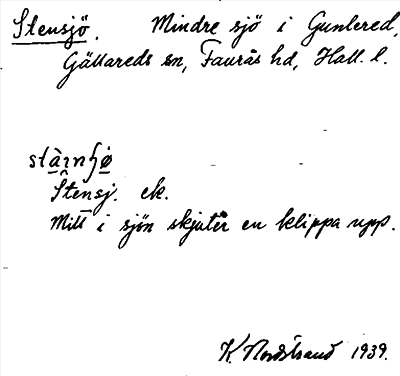 Stensjö. Mindre sjö i Gunlered,
Gällareds sn, Faurås hd, Hall. l.
stàɪnɧö̀
Stensj. ek.
Mitt i sjön skjuter en klippa upp.
K. Nordstrand 1939.